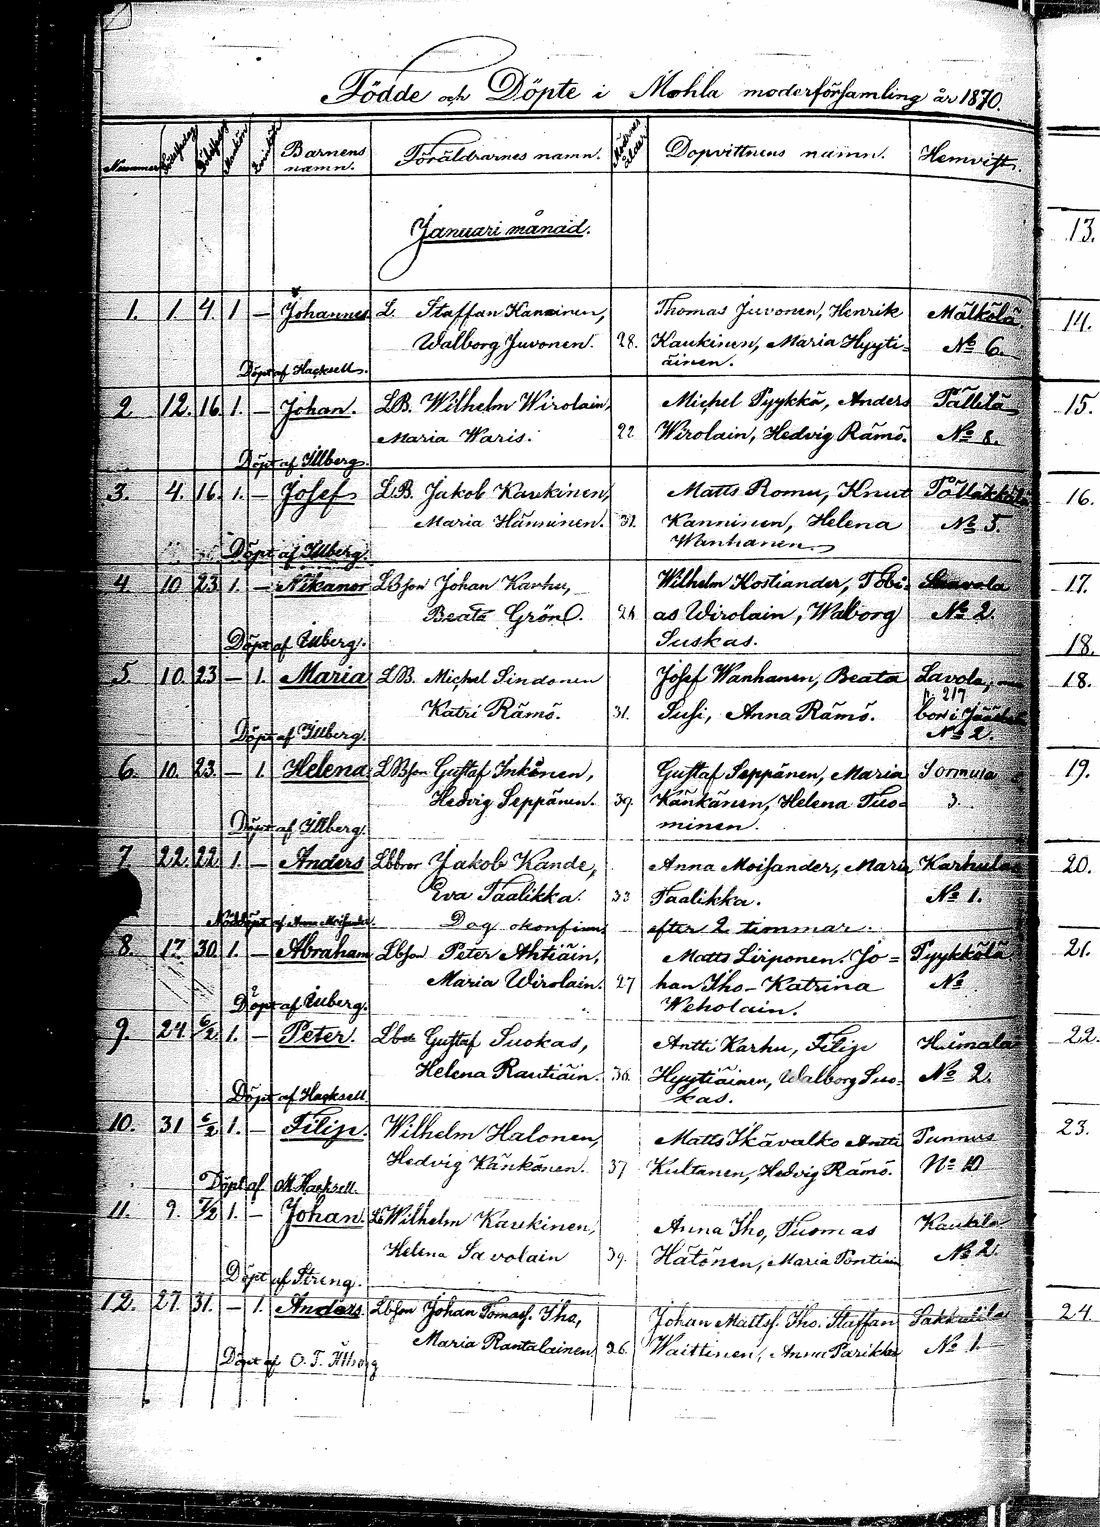 Födde och Döpte i Mohla moderförsamling år 1870.
Nummer Födelsedag Döpelsedag Mankön Qvinkön Barnens namn. Föräldrarnes namn. Modrens ålder Dopvittnens namn. Hemvist.
Januari månad.
1. 1. 4. 1 — Johannes L. Staffan Kanninen, Thomas Juvonen, Henrik Mälkölä
Walborg Juvonen. 28. Kaukinen, Maria Hyyti- No 6.
Döpt af Hacksell. äinen.
2 12. 16. 1. — Johan. LB. Wilhelm Wirolain, Michel Pyykkä, Anders Pällilä
Maria Waris. 22 Wirolain, Hedvig Rämö. No 8.
Döpt af Illberg.
3. 4. 16. 1. — Josef LB. Jakob Kaukinen, Matts Romu, Knut Pölläkkälä
Maria Hänninen. 31. Kanninen, Helena No 5.
Döpt af Illberg. Wanhanen
4 10 23 1. — Nikanor LBson Johan Karhu, Wilhelm Kostiander, Tobi-
Beata Grön. 26 as Wirolain, Walborg No 2.
Döpt af Illberg. Suskas.
5 10. 23 — 1. Maria LB. Michel Sindonen Josef Wanhanen, Beata Lavola,
p. 217
Katri Rämö. 31. Susi, Anna Rämö. bor i Jääskis
Döpt af Illberg. No 2.
6. 10. 23. — 1. Helena LBson Gustaf Inkinen, Gustaf Seppänen, Maria Sormula
Hedvig Seppänen. 39. Känkänen, Helena Tuo- 3.
Döpt af Illberg. minen.
7. 22. 22. 1. — Anders Lbbror Jakob Kande, Anna Moisander, Maria Karhula
Eva Taalikka. 33 Taalikka. No 1.
Nöddöpt af Anna Moisander. Dog okonfirm. efter 2 timmar.
8. 17. 30. 1. — Abraham Lbson Peter Ahtiäin, Matts Lirponen. Jo- Pyykkölä
Maria Wirolain. 27 han Iho- Katrina No
Döpt af Illberg. Weholain.
9. 24. 6/2 1. — Peter. Gustaf Suokas, Antti Karhu, Filip Heimala
Helena Rautiäin. 36. Hyytiäinen, Walborg Suo- No 2.
Döpt af Hacksell. kas.
10. 31 6/2 1. — Filip. Wilhelm Halonen, Matts Skävalko Antti Punnus
Hedvig Känkänen. 37 Kultanen, Hedvig Rämö. No 10
Döpt af M. Hacksell.
11. 9. 7/2 1. — Johan. Wilhelm Kaukinen, Anna Iho, Tuomas Kaukila
Helena Savolain 39. Hätönen, Maria Pontiain No 2.
Döpt af Streng.
12. 27. 31. — 1. Anders Lbson Johan Tomasf. Iho, Johan Mattsf. Iho. Staffan Sakkulila
Maria Rantalainen. 26. Waittinen, Anna Parikka No 1.
Döpt af O. T.
13.
14.
15.
16.
17.
18.
18.
19.
20.
21.
22.
23.
24